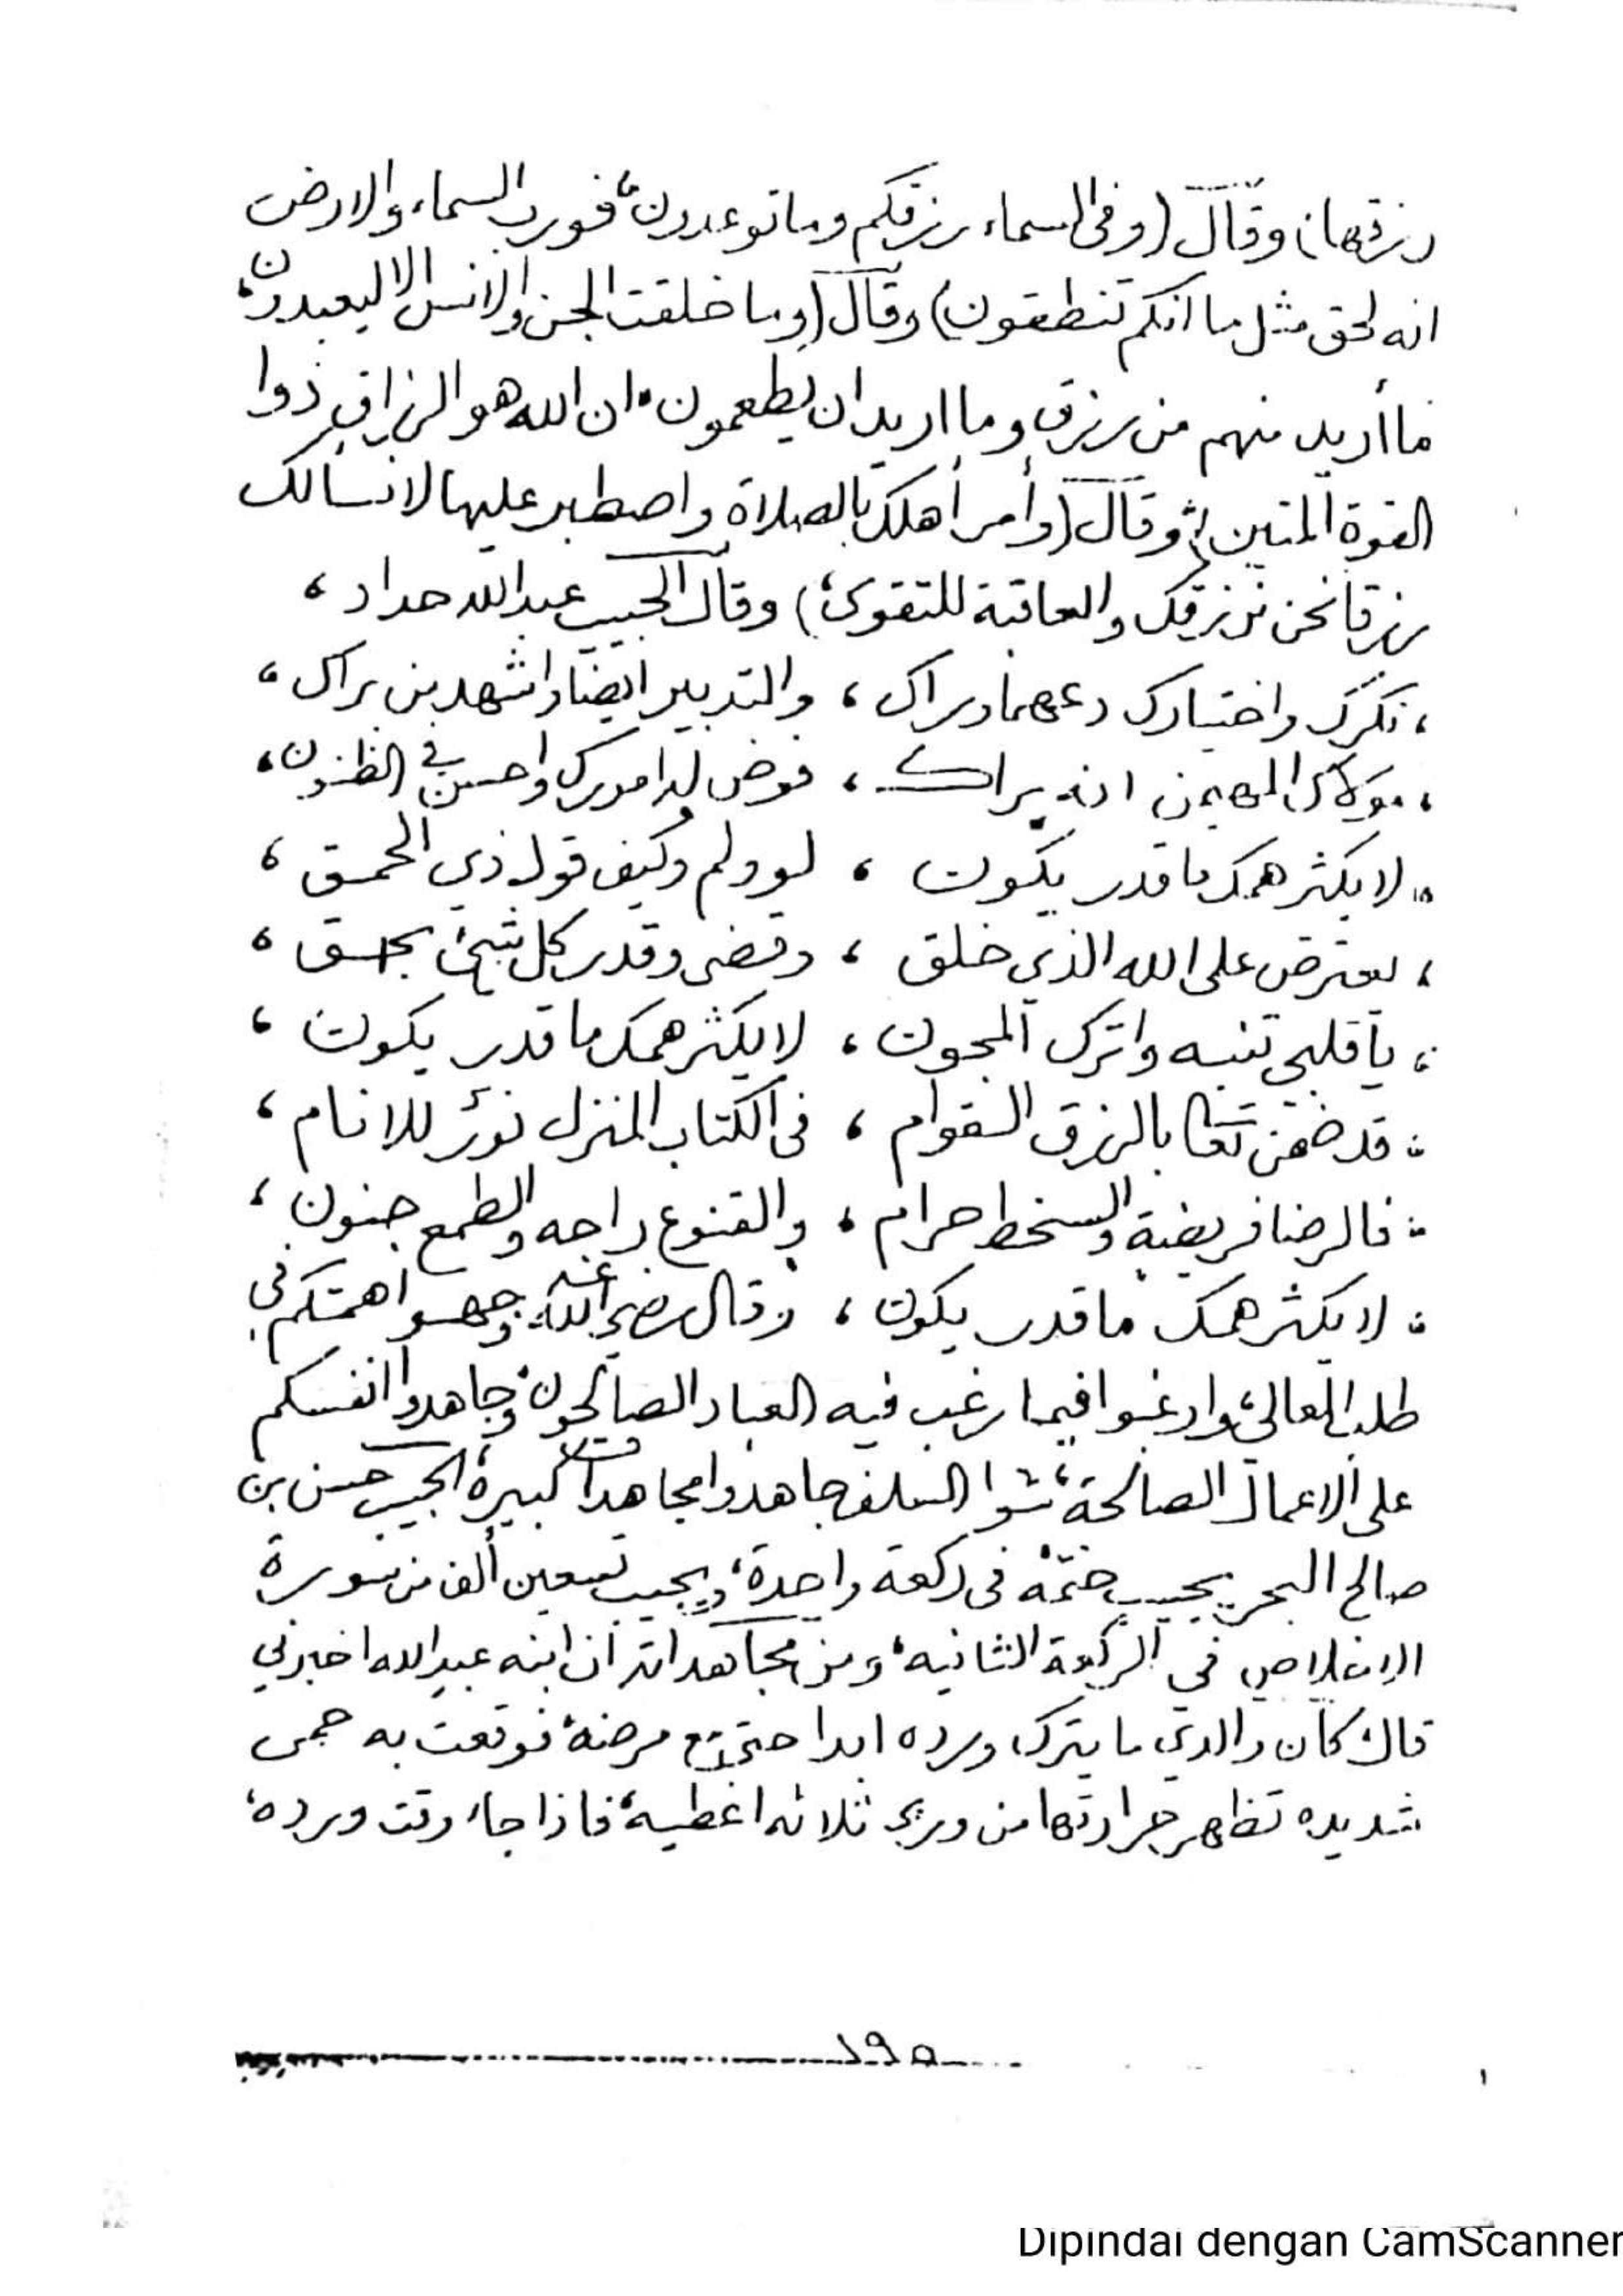 رزقها) وقال (وفى السماء رزقكم وما توعدون، فورب السماء والارض
انه لحق مثل ما انكم تنطقون) وقال (وما خلقت الجن والانس الا ليعبدون،
ما أريد منهم من رزق وما اريد ان يطعمون، ان الله هو الرزاق ذوا
القوة المتين) وقال (وأمر أهلك بالصلاة واصطبر عليها لانسالك
رزقا نحن نرزقك والعاقبة للتقوى) وقال الحبيب عبدالله حداد ،
، فكرك واختيارك دعهما وراك ، والتدبير ايضا واشهد من براك ،
، مولاك المهيمن انه يراك ، فوض له امورك واحسن في الظنون ،
، لا يكثر همك ما قدر يكون ، لو ولم وكيف قول ذي الحمق ،
، يعترض على الله الذي خلق ، وقضى وقدر كل شيئ بحق ،
، يا قلبي تنبه واترك المجون ، لا يكثر همك ما قدر يكون ،
، قد ضمن تعا بالرزق القوام ، فى الكتاب المنزل نور للانام ،
، فالرضا فريضة والسخط حرام ، والقنوع راحه والطمع جنون ،
، لا يكثر همك ما قدر يكون ، وقال رضي الله عنه وجهوا همتكم في
طلب المعالى، وارغبوا فيما رغب فيه العباد الصالحون، وجاهدوا انفسكم
على الاعمال الصالحة، شوا السلف جاهدوا مجاهدات كبيرة، الحبيب حسن بن
صالح البحر يجيب ختمة فى ركعة واحدة، ويجيب تسعين ألف من سورة
الاخلاص في الركعة الثانيه، ومن مجاهداته أن ابنه عبدالله اخبرني
قال كان والدي ما يترك ورده ابدا حتى مع مرضه، فوقعت به حمى
شديده تظهر حرارتها من ورى ثلاثه اغطيه، فاذا جاء وقت ورده،
١٩٥
Dipindai dengan CamScanner